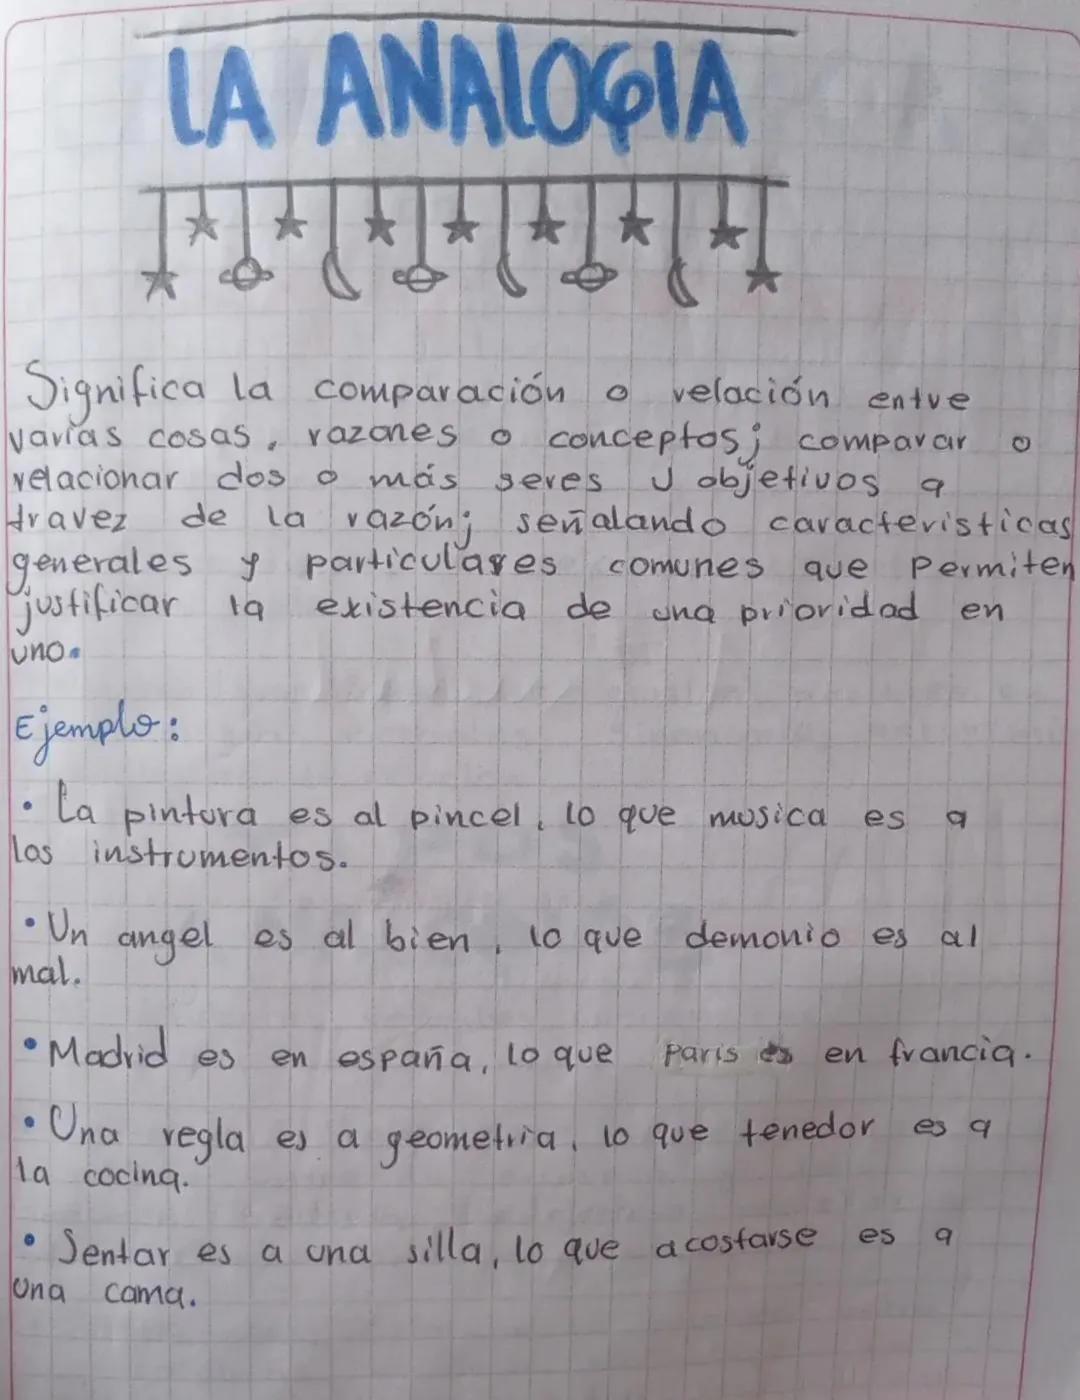 LA ANALOGIA
Significa la comparación o relación entre
varias cosas, razones o conceptos; comparar o
relacionar dos o más seres u objetivos a
travez de la razón; señalando caracteristicas
generales y particulares comunes que permiten
justificar la existencia de una prioridad en
uno.
Ejemplo:
• La pintura es al pincel, lo que musica es a
los instrumentos.
• Un angel es al bien, lo que demonio es al
mal.
• Madrid es en españa, lo que Paris es en francia.
• Una regla es a geometria, lo que tenedor es a
la cocina.
• Sentar es a una silla, lo que acostarse es a
una cama.